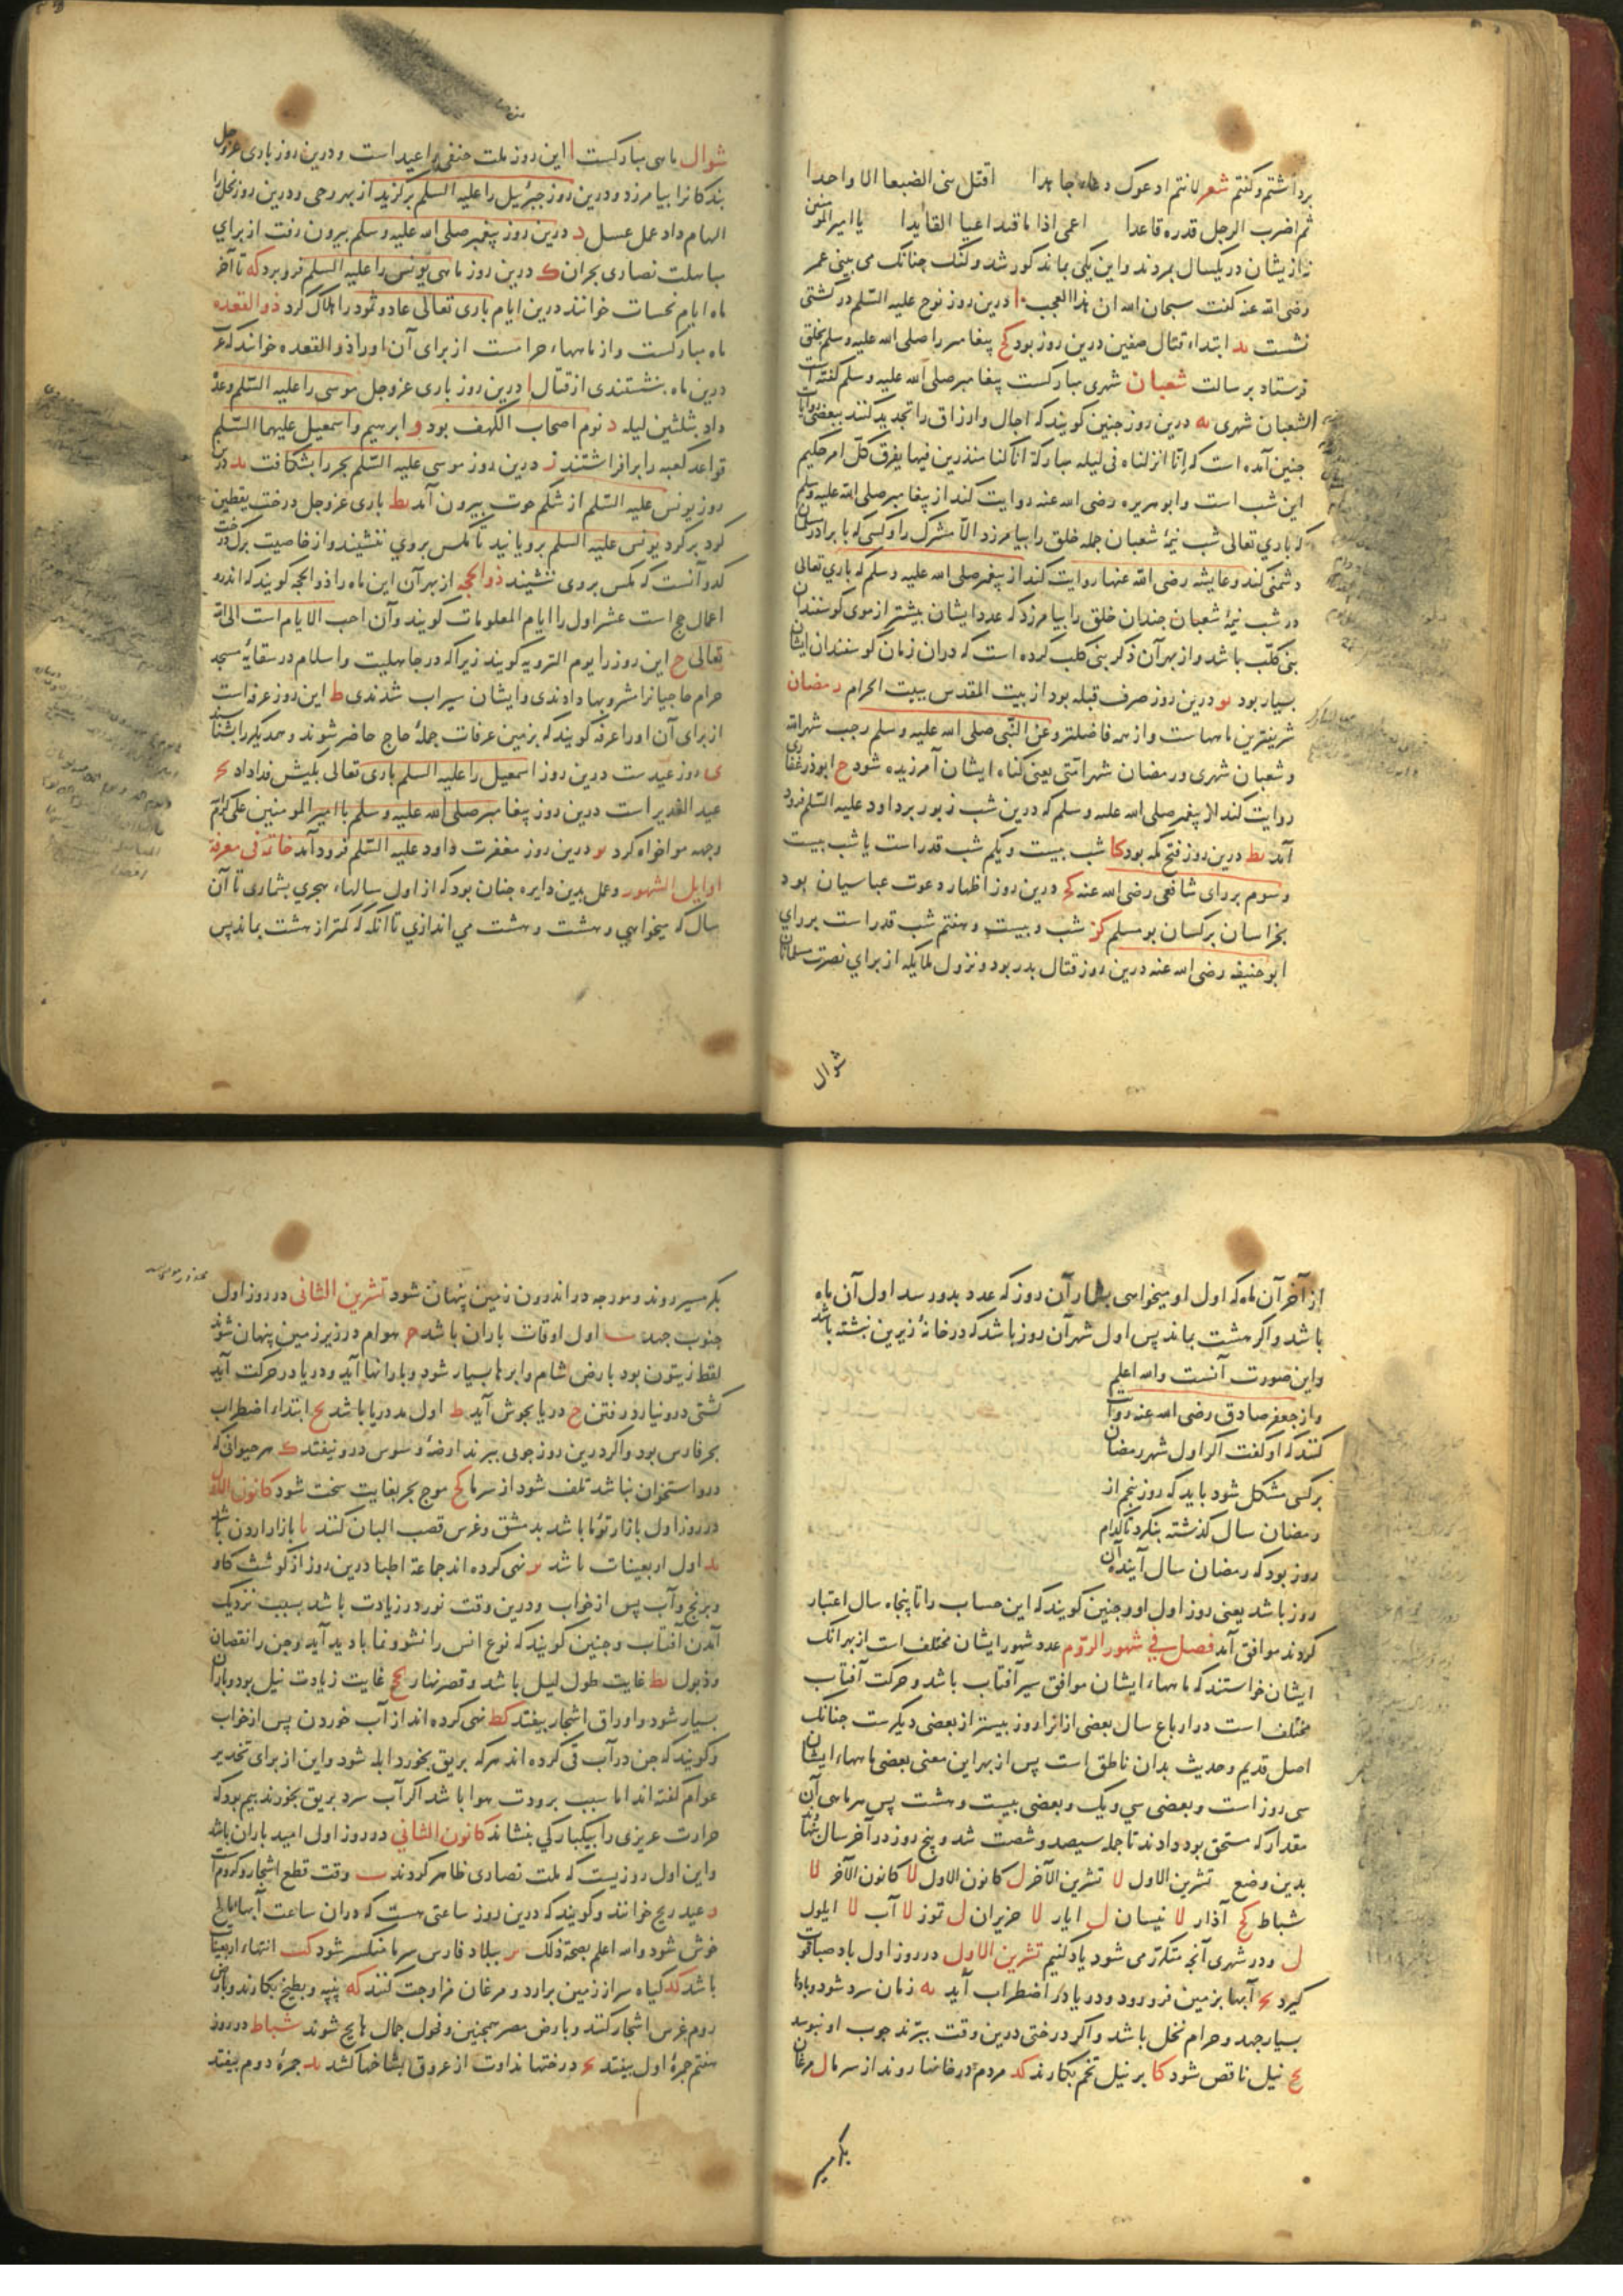 برداشتم و گفتم شعر لانتم ادعوک دعاء جاهدا اقتل بنی الضبعا الا واحدا
ثم اضرب الرجل فذره قاعدا اعمی اذا ما قید اعیا القایدا یا امیر المومنین
نه ازیشان در یکسال بمردند و این یکی بماند کور شد و کنک چنانک می بینی عمر
رضی الله عنه کفت سبحان الله ان هذا العجب ا درین روز نوح علیه السلم در کشتی
نشست ید ابتداء قتال صفین درین روز بود کح پیغامبر را صلی الله علیه وسلم بخلق
فرستاد برسالت شعبان شهری مبارکست پیغامبر صلی الله علیه وسلم کفته است
الشعبان شهری یه درین روز جنین کویند که اجال و ارزاق را تجدید کنند ببعضی روایات
جنین آمده است که انا انزلناه فی لیله مبارکة انا کنا منذرین فیها یفرق کل امر حکیم
این شب است و ابو هریره رضی الله عنه روایت کند از پیغامبر صلی الله علیه وسلم
که باری تعالی شب نیمهٔ شعبان جمله خلق را بیامرزد الا مشرک را و کسی که با برادر مسلمان
دشمنی کند و عایشه رضی الله عنها روایت کند از پیغمبر صلی الله علیه وسلم که باری تعالی
در شب نیمهٔ شعبان جندان خلق را بیامرزد که عدد ایشان بیشتر از موی کوسفندان
بنی کلب باشد و از بهر آن ذکر بنی کلب کرده است که دران زمان کوسفندان ایشان
بسیار بود یو درین روز صرف قبله بود از بیت المقدس ببیت الحرام رمضان
شریفترین ماههاست و از همه فاضلتر و عن النبی صلی الله علیه وسلم رجب شهر الله
و شعبان شهری و رمضان شهر امتی یعنی کناه ایشان آمرزیده شود ح ابوذر غفاری
روایت کند از پیغمبر صلی الله علیه وسلم که درین شب زبور بر داود علیه السلم فرود
آمد یط درین روز فتح مکه بود کا شب بیست و یکم شب قدر است یا شب بیست
و سوم بر رای شافعی رضی الله عنه که درین روز اظهار دعوت عباسیان بود
بخراسان بر کسان بومسلم کز شب و بیست و هفتم شب قدر است بر رای
ابو حنیفه رضی الله عنه درین روز قتال بدر بود و نزول ملایکه از برای نصرت مسلمانان
شوال
شوال ماهی مبارکست ا این روز ملت حنفی را عید است و درین روز باری عز وجل
بندکانرا بیامرزد و درین روز جبرئیل را علیه السلم برکزید از بهر وحی و درین روز نحل را
الهام داد عمل عسل د درین روز پیغمبر صلی الله علیه وسلم بیرون رفت از برای
مباهلت نصاری نجران ک درین روز ماهی یونس را علیه السلم فرو برد که تا آخر
ماه ایام نحسات خوانند درین ایام باری تعالی عاد و ثمود را هلاک کرد ذو القعده
ماه مبارکست و از ماههاء حرامست از برای آن او را ذو القعده خوانند که عرب
درین ماه بنشستندی از قتال ا درین روز باری عز وجل موسی را علیه السلم وعده
داد بثلثین لیله د نوم اصحاب الکهف بود و ابرهیم و اسمعیل علیهما السلم
قواعد کعبه را برافراشتند ز درین روز موسی علیه السلم بحر را بشکافت ید درین
روز یونس علیه السلم از شکم حوت بیرون آمد یط باری عز وجل درخت یقطین
کرد بر کرد یونس علیه السلم برویانید تا مکس بروی ننشیند و از خاصیت برک درخت
کدو آنست که مکس بروی ننشیند ذو الحجه از بهر آن این ماه را ذو الحجه کویند که اندرو
اعمال حج است عشر اول را ایام المعلومات کویند و آن احب الایام است الی الله
تعالی ح این روز را یوم الترویه کویند زیرا که در جاهلیت و اسلام در سقایهٔ مسجد
حرام حاجیانرا شربها دادندی و ایشان سیراب شدندی ط این روز عرفه است
از برای آن او را عرفه کویند که بزمین عرفات جملهٔ حاج حاضر شوند و همدیکر را بشناسند
ی روز عیدست درین روز اسمعیل را علیه السلم باری تعالی بکبش فدا داد یح
عید الغدیر است درین روز پیغامبر صلی الله علیه وسلم با امیر المومنین علی کرم الله
وجهه مواخواه کرد یو درین روز مغفرت داود علیه السلم فرود آمد خاتمه فی معرفة
اوایل الشهور و عمل بدین دایره جنان بود که از اول سالهاء هجری بشماری تا آن
سال که میخواهی و هشت و هشت می اندازی تا آنکه که کمتر از هشت بماند پس
از آخر آن ماه که اول او میخواهی بشمار آن روز که عدد بدو رسد اول آن ماه
باشد و اکر هشت بماند پس اول شهر آن روز باشد که در خانهٔ زیرین نبشته باشد
و این صورت آنست والله اعلم
و از جعفر صادق رضی الله عنه روایت
کنند که او کفت اکر اول شهر رمضان
بر کسی مشکل شود باید که روز پنجم از
رمضان سال کذشته بنکرد تا کدام
روز بود که رمضان سال آینده آن
روز باشد یعنی روز اول او و جنین کویند که این حساب را تا پنجاه سال اعتبار
کردند موافق آمد فصل فی شهور الروم عدد شهور ایشان مختلف است از بهر آنک
ایشان خواستند که ماههاء ایشان موافق سیر آفتاب باشد و حرکت آفتاب
مختلف است در ارباع سال بعضی از انرا روز بیشتر از بعضی دیکرست جنانک
اصل قدیم و حدیث بدان ناطق است پس از بهر این معنی بعضی ماههاء ایشان
سی روز است و بعضی سی و یک و بعضی بیست و هشت پس هر ماهی آن
مقدار که مستحق بود دادند تا جمله سیصد و شصت شد و پنج روز در آخر سال
بدین وضع تشرین الاول لا تشرین الآخر ل کانون الاول لا کانون الآخر لا
شباط کح آذار لا نیسان ل ایار لا حزیران ل تموز لا آب لا ایلول
ل و در شهری آنچه متکرر می شود یاد کنیم تشرین الاول در روز اول باد صبا قوت
کیرد یح آبها بزمین فرو رود و دریا در اضطراب آید یه زمان سرد شود و بادها
بسیار جهد و حرام نخل باشد و اکر درختی درین وقت ببرند جوب او نپوسد
یح نیل ناقص شود کا بر نیل تخم بکارند کد مردم در خانها روند از سرما ل مرغان
بکرمسیر
بکرمسیر روند و مورجه در اندرون زمین پنهان شود تشرین الثانی در روز اول
جنوب جهد ب اول اوقات باران باشد ح هوام در زیر زمین پنهان شوند
لقط زیتون بود بارض شام و ابرها بسیار شود و بارانها آید و دریا در حرکت آید
کشتی درو نیارد رفتن ح دریا بجوش آید ط اول مد دریا باشد یح ابتداء اضطراب
بحر فارس بود و اکر درین روز جوبی ببرند ارضه و سوس درو نیفتد ک هر حیوانی که
درو استخوان نباشد تلف شود از سرما کح موج بحر بغایت سخت شود کانون الاول
در روز اول بازار توما باشد بدمشق و غرس قصب البان کنند یا بازار اردن باشد
ید اول اربعینات باشد یر نهی کرده اند جماعة اطبا درین روز از کوشت کاو
و برنج و آب پس از خواب و درین وقت نور در زیادت باشد بسبب نزدیک
آمدن آفتاب و جنین کویند که نوع انس را نشو و نما بادید آید و جن را نقصان
و ذبول یط غایت طول لیل باشد و قصر نهار کح غایت زیادت نیل بود و باران
بسیار شود و اوراق اشجار بیفتد کط نهی کرده اند از آب خوردن پس از خواب
و کویند که جن در آب قی کرده اند هر که بریق بخورد ابله شود و این از برای تحذیر
عوام کفته اند اما سبب برودت هوا باشد اکر آب سرد بریق بخورند بیم بود که
حرارت عزیزی را بیکبارکی بنشاند کانون الثانی در روز اول امید باران باشد
و این اول روزیست که ملت نصاری ظاهر کردند ب وقت قطع اشجار و کروم است
د عید ریح خوانند و کویند که درین روز ساعتی هست که دران ساعت آبهاء تلخ
خوش شود والله اعلم بصحة ذلک یر ببلاد فارس سرما منکسر شود کب انتهاء اربعینات
باشد کد کیاه سر از زمین برارد و مرغان مزاوجت کنند که پنبه و بطیخ بکارند و بارض
روم غرس اشجار کنند و بارض مصر همجنین و فحول جمال هایج شوند شباط در روز
هفتم جمرهٔ اول بیفتد یح درختها نداوت از عروق بشاخها کشد ید جمرهٔ دوم بیفتد